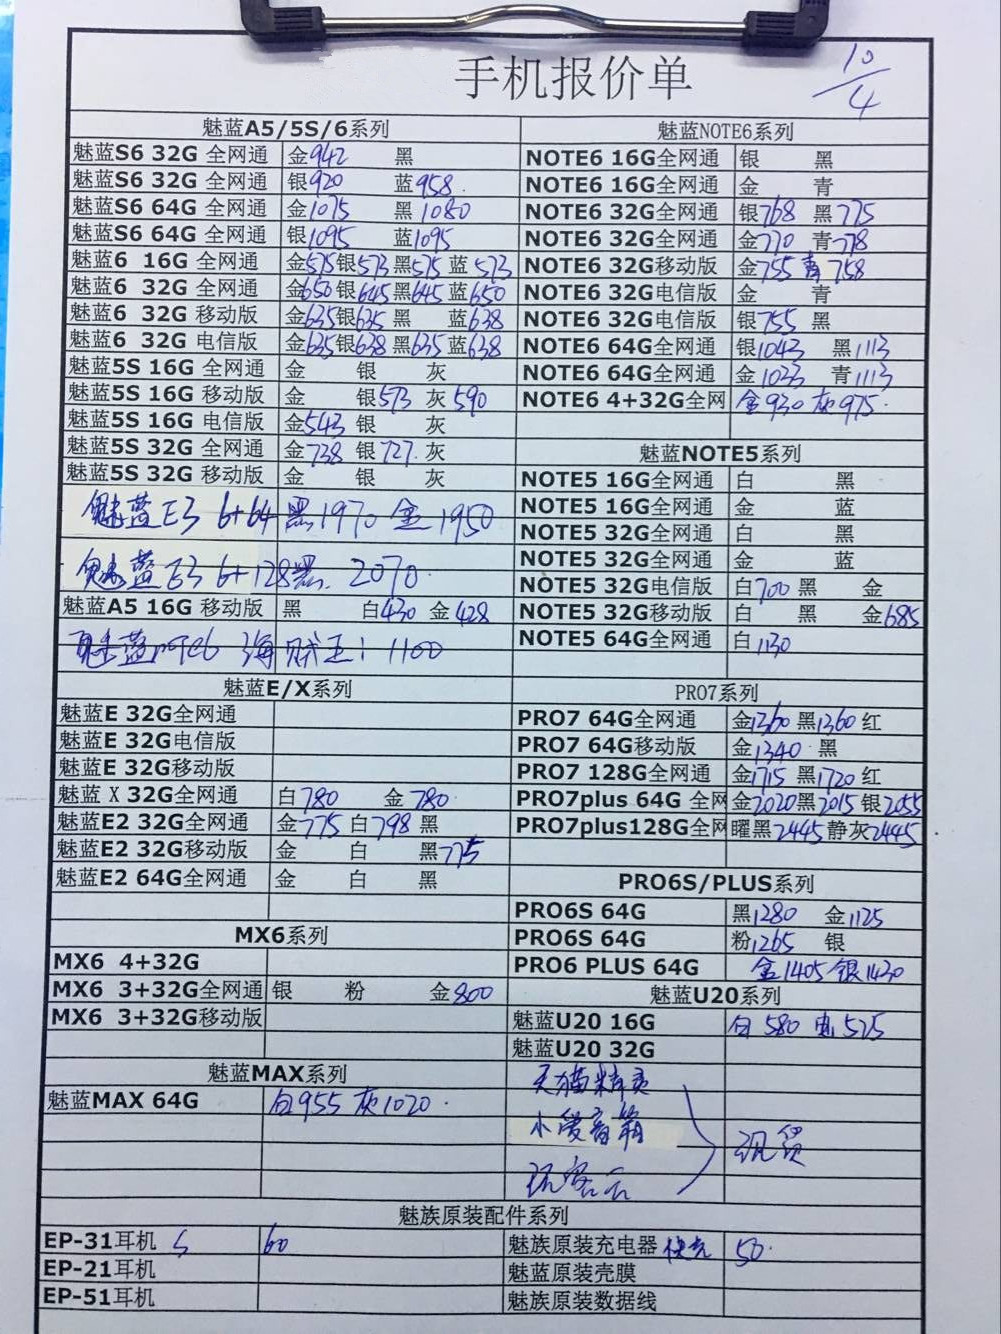 手机报价单
10/4
魅蓝A5/5S/6系列
魅蓝S6 32G 全网通 金942 黑
魅蓝S6 32G 全网通 银920 蓝958
魅蓝S6 64G 全网通 金1075 黑1080
魅蓝S6 64G 全网通 银1095 蓝1095
魅蓝6 16G 全网通 金575银573黑575 蓝573
魅蓝6 32G 全网通 金650银645黑645蓝650
魅蓝6 32G 移动版 金635银635 黑 蓝638
魅蓝6 32G 电信版 金635银638黑635蓝638
魅蓝5S 16G 全网通 金 银 灰
魅蓝5S 16G 移动版 金 银573 灰590
魅蓝5S 16G 电信版 金543 银 灰
魅蓝5S 32G 全网通 金738 银727 灰
魅蓝5S 32G 移动版 金 银 灰
魅蓝E3 6+64 黑1970 金1950
魅蓝E3 6+128黑 2070
魅蓝A5 16G 移动版 黑 白430 金428
魅蓝note6 海贼王: 1100
魅蓝E/X系列
魅蓝E 32G全网通
魅蓝E 32G电信版
魅蓝E 32G移动版
魅蓝X 32G全网通 白780 金780
魅蓝E2 32G全网通 金775 白798 黑
魅蓝E2 32G移动版 金 白 黑775
魅蓝E2 64G全网通 金 白 黑
MX6系列
MX6 4+32G
MX6 3+32G全网通 银 粉 金800
MX6 3+32G移动版
魅蓝MAX系列
魅蓝MAX 64G 白955 灰1020
魅蓝NOTE6系列
NOTE6 16G全网通 银 黑
NOTE6 16G全网通 金 青
NOTE6 32G全网通 银768 黑775
NOTE6 32G全网通 金770 青778
NOTE6 32G移动版 金755 青758
NOTE6 32G电信版 金 青
NOTE6 32G电信版 银755 黑
NOTE6 64G全网通 银1043 黑1113
NOTE6 64G全网通 金1033 青1113
NOTE6 4+32G全网 金930 灰975
魅蓝NOTE5系列
NOTE5 16G全网通 白 黑
NOTE5 16G全网通 金 蓝
NOTE5 32G全网通 白 黑
NOTE5 32G全网通 金 蓝
NOTE5 32G电信版 白700 黑 金
NOTE5 32G移动版 白 黑 金685
NOTE5 64G全网通 白1130
PRO7系列
PRO7 64G全网通 金1360 黑1360 红
PRO7 64G移动版 金1340 黑
PRO7 128G全网通 金1715 黑1720 红
PRO7plus 64G 全网 金2020黑2015 银2055
PRO7plus128G全网 曜黑2445静灰2445
PRO6S/PLUS系列
PRO6S 64G 黑1280 金1125
PRO6S 64G 粉1265 银
PRO6 PLUS 64G 金1405 银1430
魅蓝U20系列
魅蓝U20 16G 白580 525
魅蓝U20 32G
天猫精灵
小爱音箱 现货
玩客云
魅族原装配件系列
EP-31耳机 60
EP-21耳机
EP-51耳机
魅族原装充电器 快充 50
魅蓝原装壳膜
魅族原装数据线